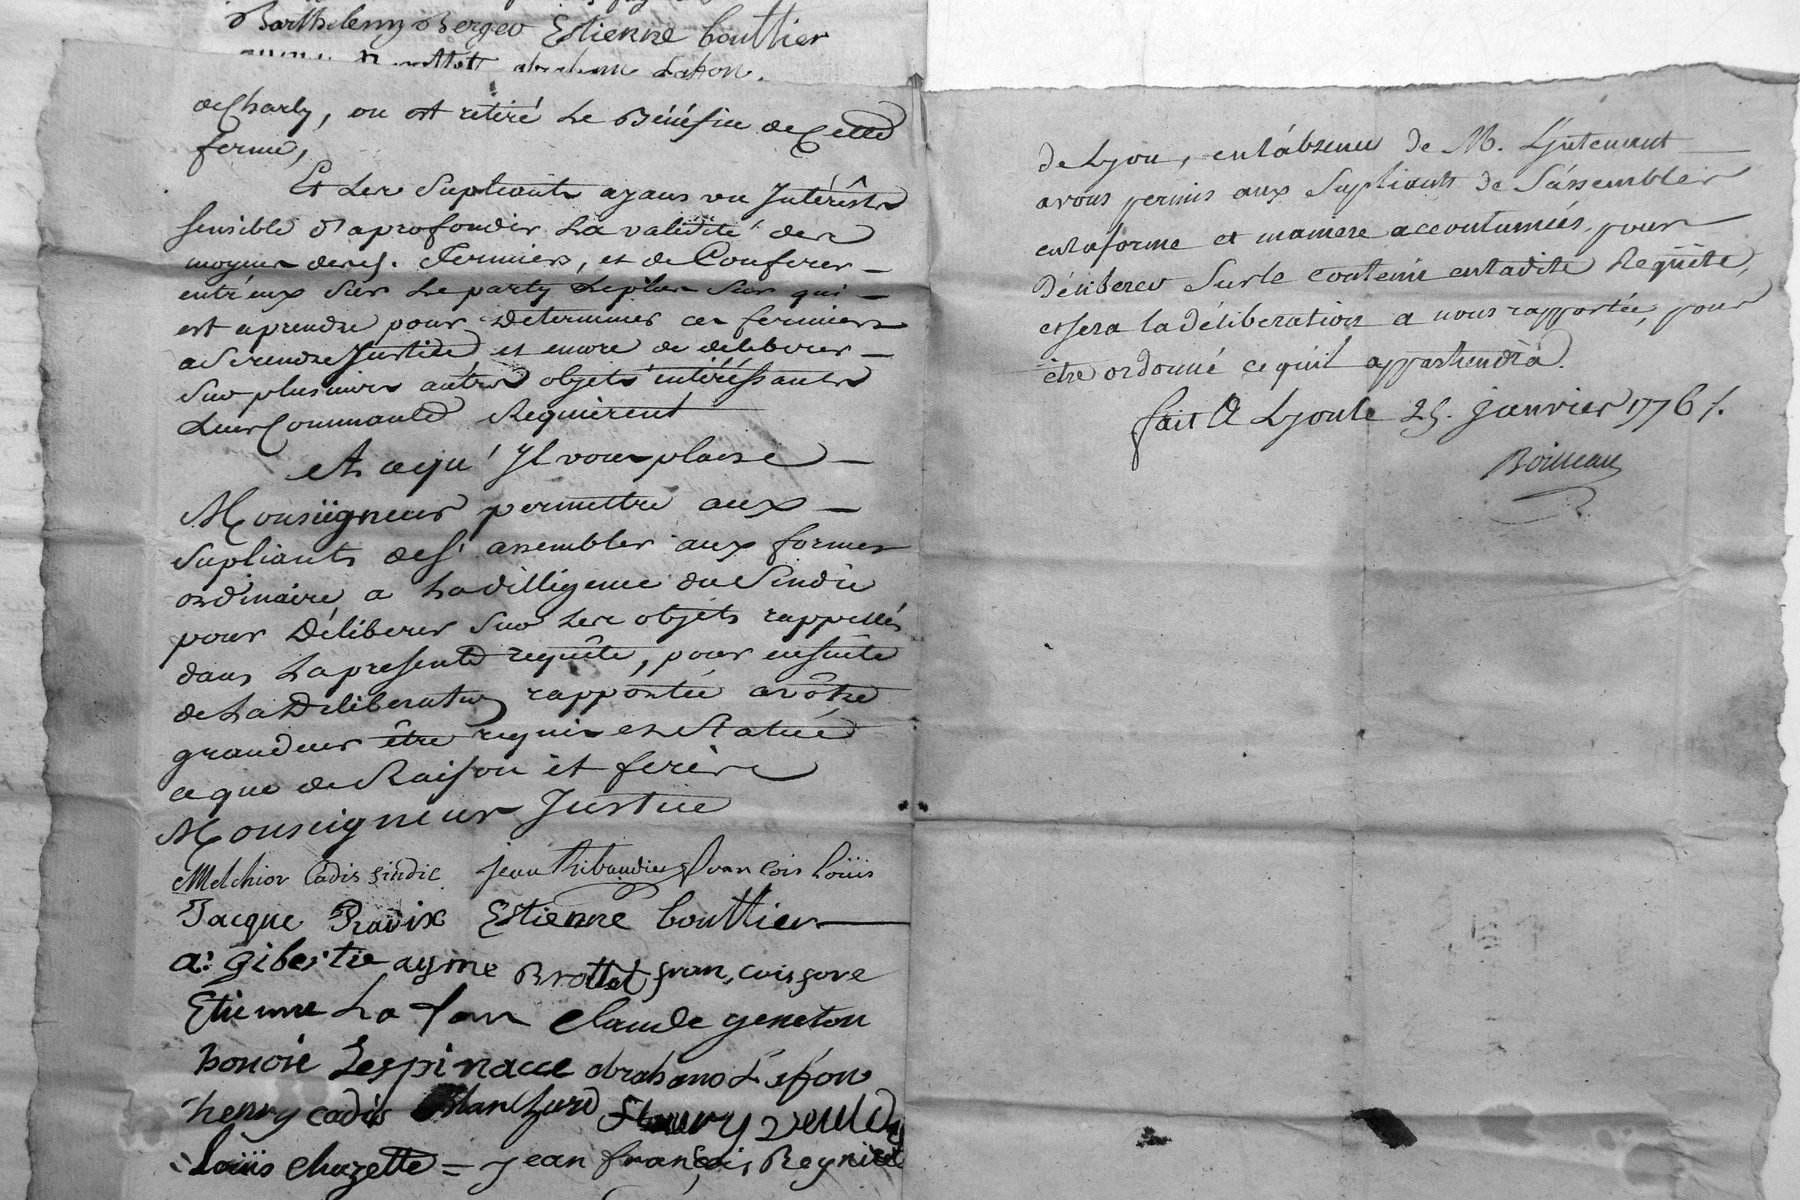 Barthelemy Berger Estienne bouttier
Brottet abrahme Lafon.
de Charly, on ost retiré Le Bénéfice de Cette
ferme,
Et Les Supliants ayans un Intérêts
sensible d'aprofondir La validité des
moyens desd. Fermiers, et de Conferer
entr'eux Sur Le party Leplus Sur qui
est aprendre pour Determiner ces fermiers
a Se rendre Justice, et encore de deliberer
Sur plusieurs autres objets intéréssants
Leur Communauté Requierent
A cequ' Il vous plaise
Monseigneur permettre aux
Supliants de s' assembler aux formes
ordinaire a La dilligence du Sindic
pour Déliberer Sur Les objets rappellés
dans La presente requête, pour ensuite
de La Deliberation rapportée a vôtre
grandeur être requis et Statué
ce que de Raison et ferés
Monseigneur Justice
Melchior Cadis sindic. jean thibaudier françois Loüis
Jacque Pradix Estienne bouttier
a: gibertie ayme Brottet, francois gore
Etienne La fon Claude geneton
honoré Lespinacce abraham Lafon
henry cadis Blanchard fleury
Loüis Chazette = jean françois Reynier
de Lyon, en l'absence de M. L'jntendant
avons permis aux Supliants de S'assembler
en la forme et maniere accoutumées, pour
Déliberer Sur le contenu en ladite Requête,
et sera la déliberation a nous rapportée, pour
être ordonné ce qu'il appartiendra.
fait A Lyon le 25. janvier 1776 /.
Boineau